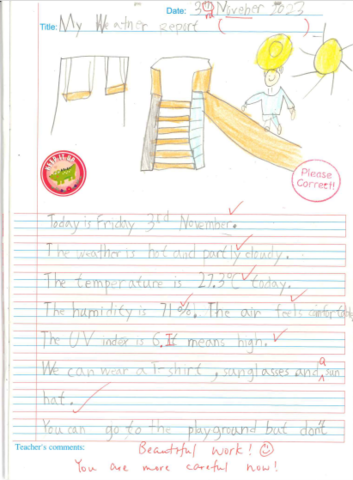 Date: 3rd November 2023
Title: My Weather report ( )
Please
Correct!!
Today is Friday 3rd November.
The weather is hot and partly cloudy.
The temperature is 27.3°C today.
The humidity is 71%. The air feels comfortable
The UV index is 6. It means high.
We can wear a T-shirt, sunglasses and a sun
hat.
You can go to the playground but don't
Teacher's comments:
Beautiful work!
You are more careful now!